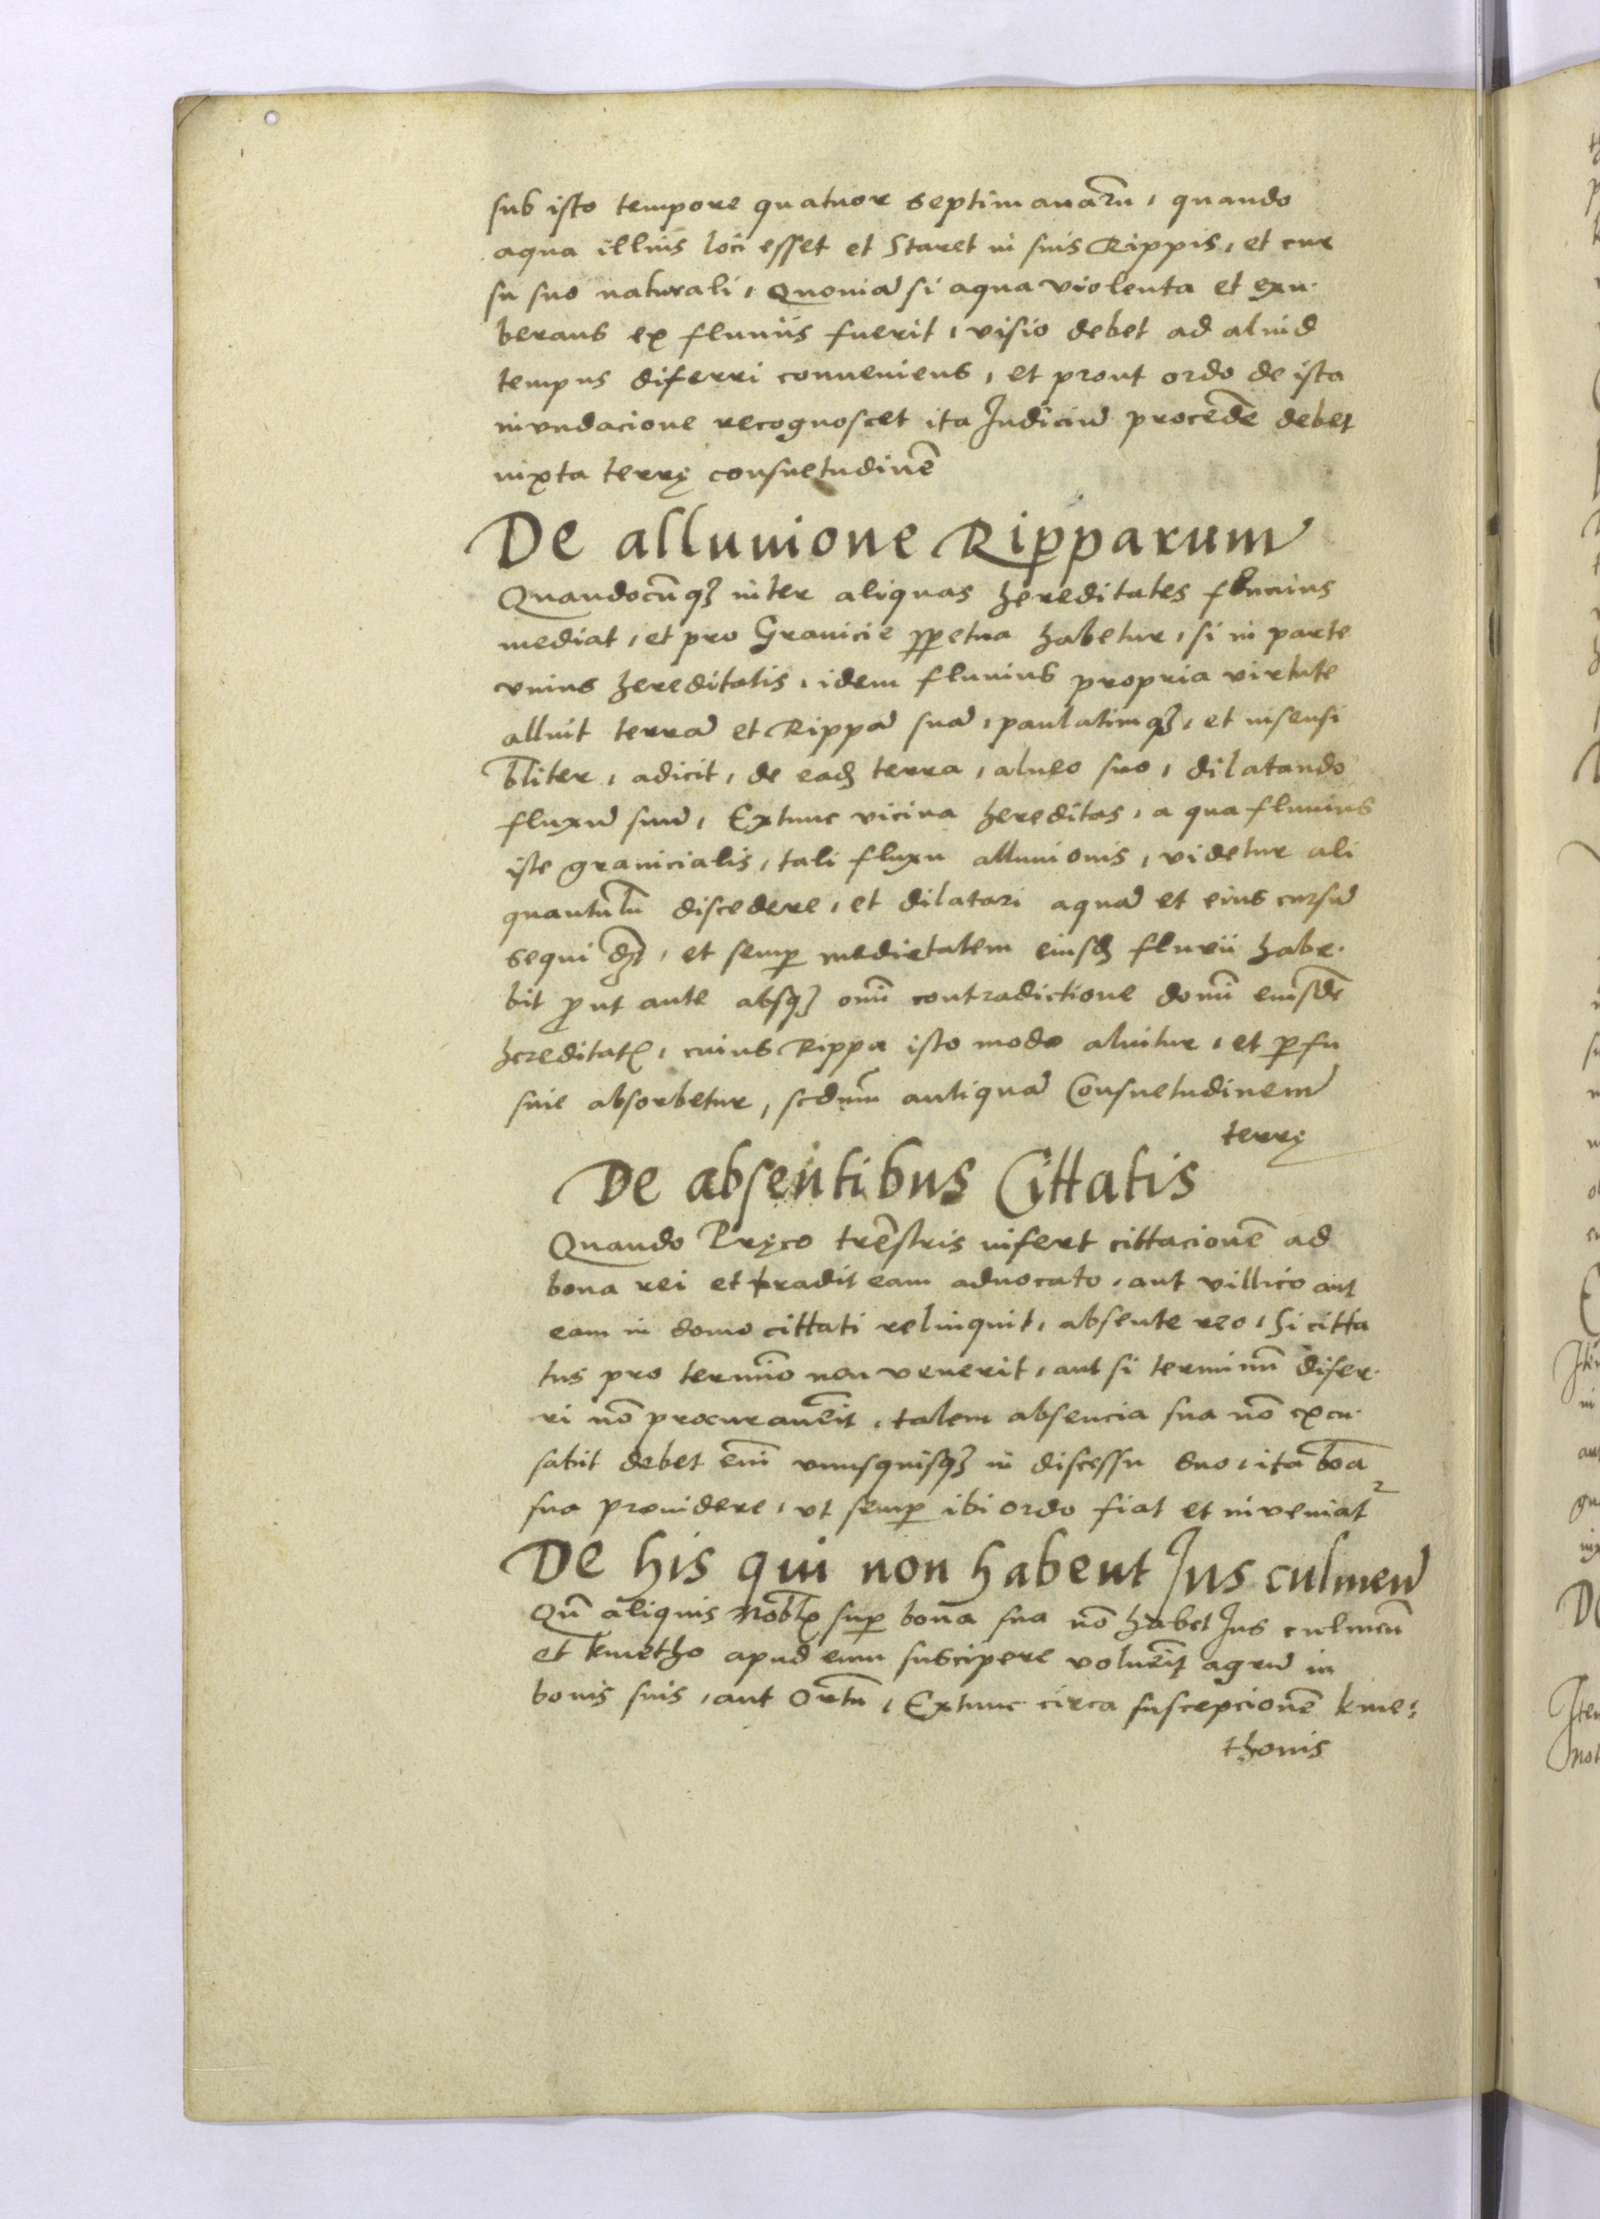 sub isto tempore quatuor septimanarū, quando
aqua illius loci esset et staret in suis Rippis, et cur
su suo naturali, Quoniā si aqua violenta et exu-
berans ex fluuiis fuerit, visio debet ad aliud
tempus diferri conueniens, et prout ordo de ista
invndacione recognoscet ita Iudiciū procedē debet
iuxta terrę consuetudinē
De alluuione Ripparum
Quandocūqꝫ inter aliquas hereditates fluuius
mediat, et pro Granicie ꝑpetua habetur, si in parte
vnius hereditatis, idem fluuius propria virtute
alluit terrā et Rippā suā, paulatimqꝫ, et insensi
bl̄iter, adicit, de eadꝫ terra, alueo suo, dilatando
fluxū suū, Extunc vicina hereditas, a qua fluuius
iste granicialis, tali fluxu alluuionis, videtur ali
quantulū discedere, et dilatari aquā et eius cursū
sequi dꝫ, et semꝑ medietatem eiusdꝫ fluvii habe-
bit ꝓut ante absqꝫ om̄i contradictione domī eiusdē
hereditatꝭ, cuius Rippa isto modo aluitur, et ꝓfu
sule absorbetur, scdum̄ antiquā Consuetudinem
terrę
De absentibus Cittatis
Quando Pręco tr̄estris infert cittacionē ad
bona rei et tradit eam aduocato, aut villico aut
eam in domo cittati relinquit, absente reo, Si citta
tus pro termīo non venerit, aut si terminū difer-
ri nō procurauerit, talem absencia sua nō excu-
sabit debet em̄ vnusquisqꝫ in discessu suo, ita bōa
sua prouidere, vt semꝑ ibi ordo fiat et inveniat2
De his qui non habent Jus culmen
Qn̄ aliquis nobl̄ꝭ suꝑ bona sua nō habet Jus culmen̄
et kmetho apud eum suscipere voluerit agrū in
bonis suis, aut Ortū, Extunc circa suscepcionē kme-
thonis